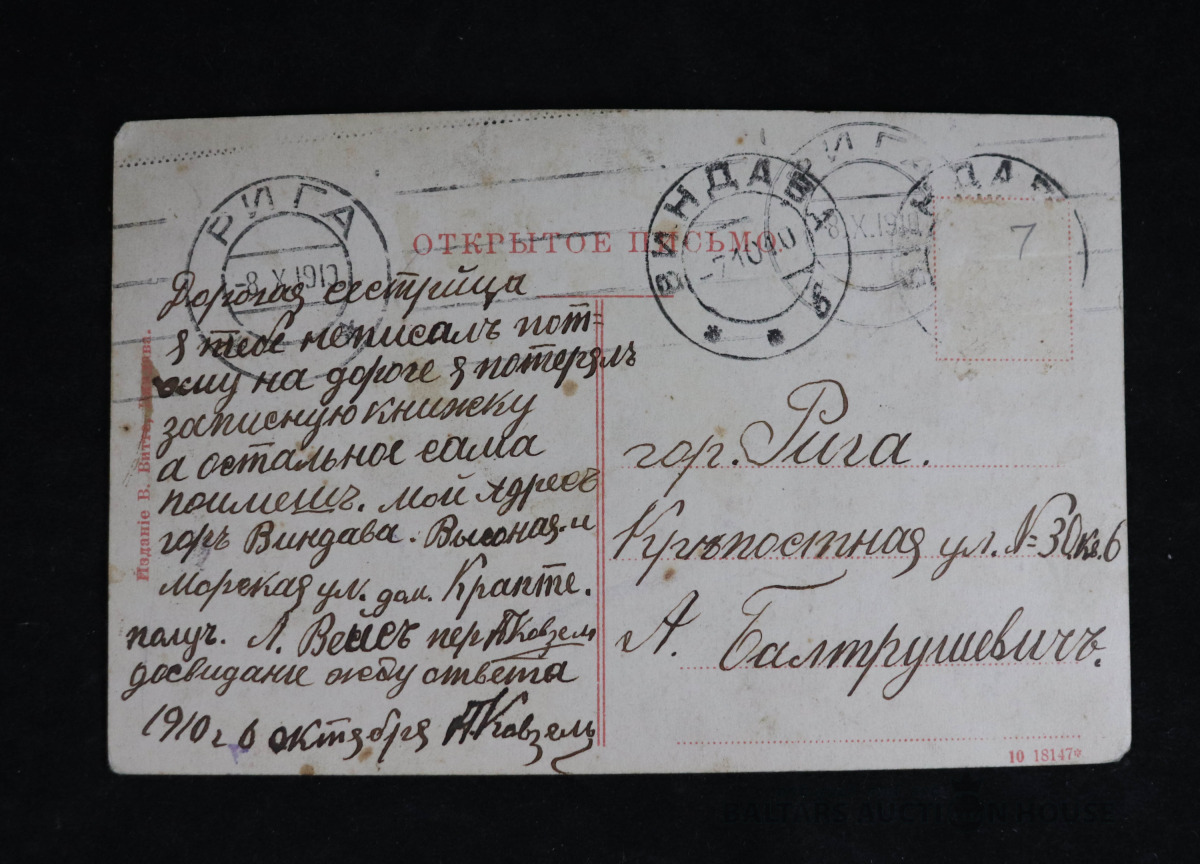 РИГА
-8.X.1910
ОТКРЫТОЕ ПИСЬМО
ВИНДАВА
-7.10.10
РИГА
8.X.1910
7
Дорогая сестрица
я тебе неписалъ пот=
ому на дороге я потерялъ
записную книжку
а остальное сама
поимешъ. мой Адресъ
горъ Виндава. Высоная-и
Морская ул. дом. Кранте.
получ. Л. Вейсъ пер АКовзель
досвидание жду ответа
1910 г 6 октября АКовзель
Изданіе В.
гор. Рига.
Крѣпостная ул. № 30 кв. 6
А. Балтрушевичъ.
10 18147*
BALTARS AUCTION HOUSE